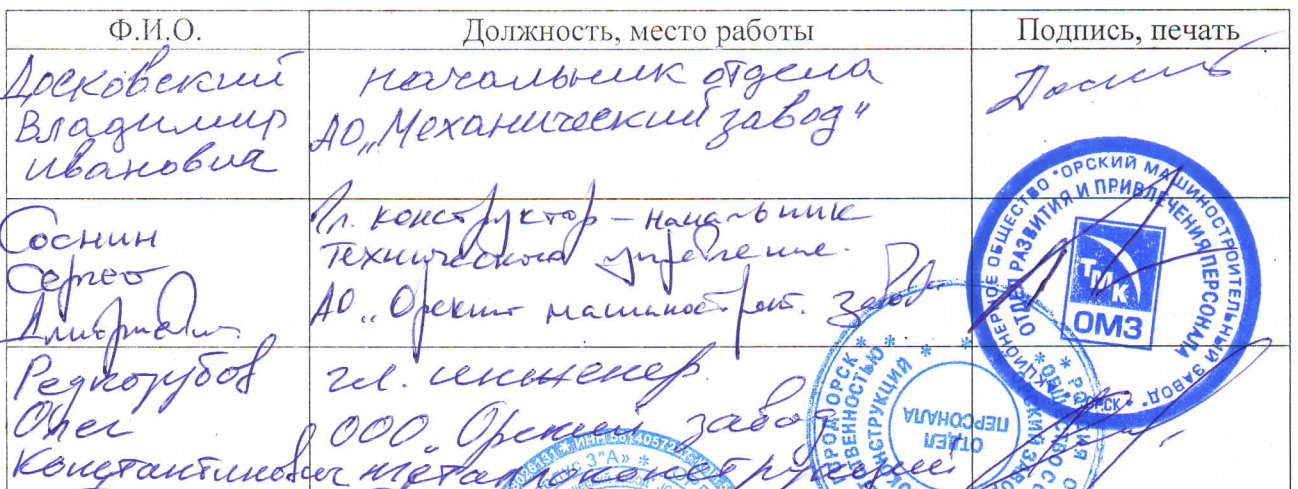 Ф.И.О. Должность, место работы Подпись, печать
Досковский
Владимир
Иванович
начальник отдела
АО „Механический завод"
Соснин
Сергей
Дмитриевич
Гл. конструктор – начальник
технического управления.
АО „Орский машиностроит. завод
АКЦИОНЕРНОЕ ОБЩЕСТВО "ОРСКИЙ МАШИНОСТРОИТЕЛЬНЫЙ ЗАВОД"
ОТДЕЛ РАЗВИТИЯ И ПРИВЛЕЧЕНИЯ ПЕРСОНАЛА
ТМК
ОМЗ
Редкозубов
Олег
Константинович
гл. инженер
ООО Орский завод
металлоконструкций
ГОРОД ОРСК
ОТДЕЛ
ПЕРСОНАЛА